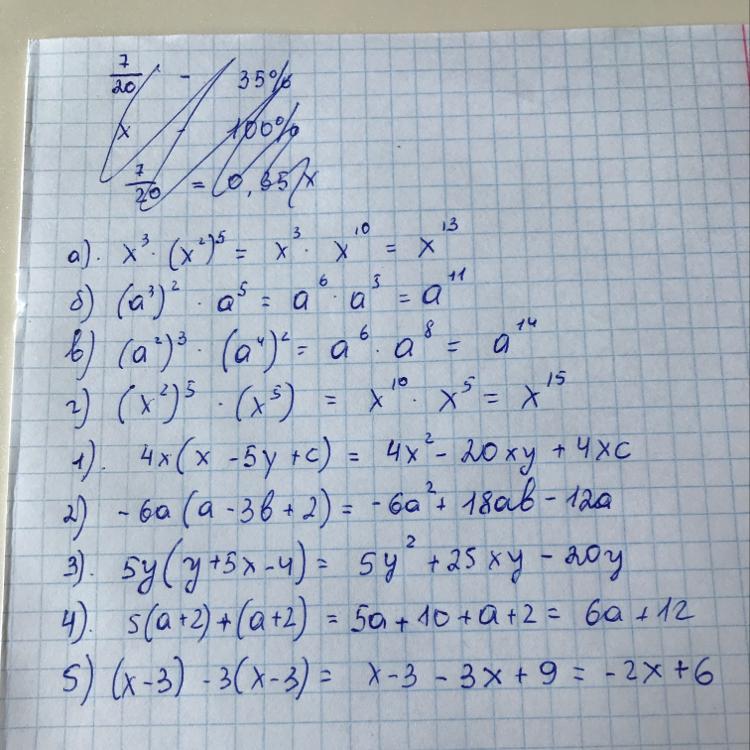 7/20 - 35%
x - 100%
7/20 = 0,35x
а). x³ · (x²)⁵ = x³ · x¹⁰ = x¹³
б) (a³)² · a⁵ = a⁶ · a⁵ = a¹¹
в) (a²)³ · (a⁴)² = a⁶ · a⁸ = a¹⁴
г) (x²)⁵ · (x⁵) = x¹⁰ · x⁵ = x¹⁵
1). 4x(x - 5y + c) = 4x² - 20xy + 4xc
2) -6a(a - 3b + 2) = -6a² + 18ab - 12a
3). 5y(y + 5x - 4) = 5y² + 25xy - 20y
4). 5(a+2) + (a+2) = 5a + 10 + a + 2 = 6a + 12
5) (x-3) - 3(x-3) = x - 3 - 3x + 9 = -2x + 6